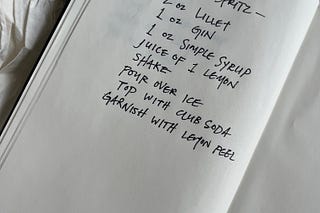 SPRITZ —
2 oz LILLET
1 oz GIN
1 oz SIMPLE SYRUP
JUICE OF 1 LEMON
SHAKE
POUR OVER ICE
TOP WITH CLUB SODA
GARNISH WITH LEMON PEEL